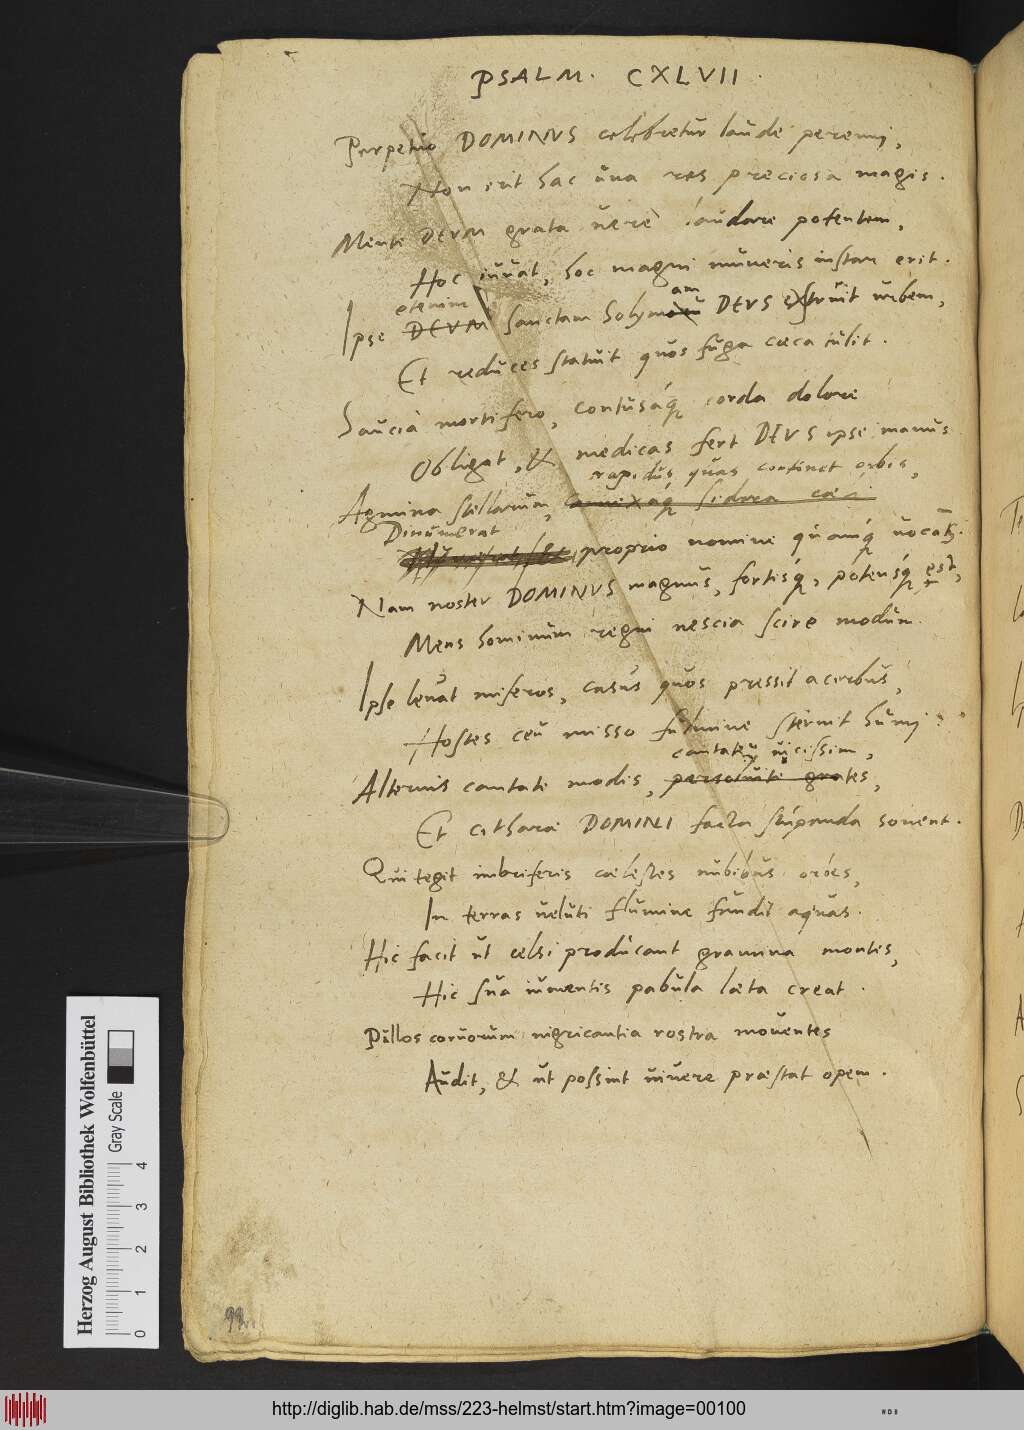 PSALM. CXLVII.
Perpetuo DOMINVS celebretur laude perenni,
Non erit hac una res preciosa magis.
Mente DEVM grata uere laudare potentem,
Hoc iuuat, hoc magni muneris instar erit.
etenim am
Ipse DEVM sanctam Solymam DEVS exstruit urbem,
Et reduces statuit quos fuga caeca tulit.
Saucia mortifero, contusáq; corda dolore
Obligat, & medicas fert DEVS ipse manus
rapidus quas continet orbis,
Agmina stellarum, connexaq; sidera
Dinumerat
proprio nomine quamq; uocans.
Nam noster DOMINVS magnus, fortisq;, potensq; est,
Mens hominum regni nescia scire modum.
Ipse leuat miseros, casus quos pressit acerbus,
Hostes ceu misso fulmine sternit humi:
cantate uicissim,
Alternis cantate modis, persoluite grates,
Et citharae DOMINI facta stupenda sonent.
Qui tegit imbriferis caelestes nubibus orbes,
In terras ueluti flumine fundit aquas.
Hic facit ut celsi producant gramina montes,
Hic sua iumentis pabula laeta creat.
Pullos coruorum nigricantia rostra mouentes
Audit, & ut possint uiuere praestat opem.
99
Herzog August Bibliothek Wolfenbüttel
Gray Scale
0 1 2 3 4
http://diglib.hab.de/mss/223-helmst/start.htm?image=00100